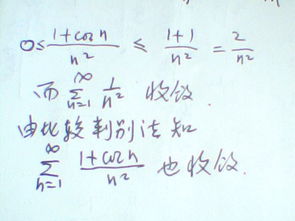 0≤ (1+cos n)/n² ≤ (1+1)/n² = 2/n²
而 ∑_{n=1}^{∞} 1/n² 收敛.
由比较判别法知
∑_{n=1}^{∞} (1+cos n)/n² 也收敛.